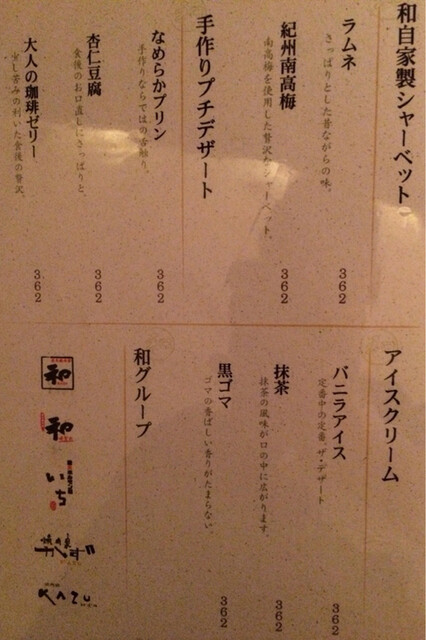 和自家製シャーベット
ラムネ
さっぱりとした昔ながらの味。
362
紀州南高梅
南高梅を使用した贅沢なシャーベット。
362
手作りプチデザート
なめらかプリン
手作りならではの舌触り。
362
杏仁豆腐
食後のお口直しにさっぱりと。
362
大人の珈琲ゼリー
少し苦みの利いた食後の贅沢。
362
アイスクリーム
バニラアイス
定番中の定番。ザ・デザート
362
抹茶
抹茶の風味が口の中に広がります。
362
黒ゴマ
ゴマの香ばしい香りがたまらない。
362
和グループ
和
和
いち
KAZU